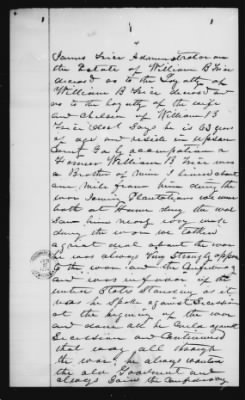 1
James Tice Administrator on
the Estate of William B Tice
deceased as to the Loyalty of
William B Tice deceased and
as to the loyalty of the wife
and Children of William B
Tice dect Says he is 63 years
of age and reside in
County Ga by occupation a
Farmer William B Tice was
a Brother of mine I lived about
one mile from him during the
war Joining Plantations we were
both at Home during the war
Saw him nearly every week
during the war we talked
a great deal about the war
he was always Very Strongly opposed
to the war and the Confederacy
and was in favour of the
united States Standing as it
was he Spoke against Secession
at the begining of the war
and done all he could against
Secession and Continued
that way all through
the war, he always wanted
the old Goverment and
always the Confederacy